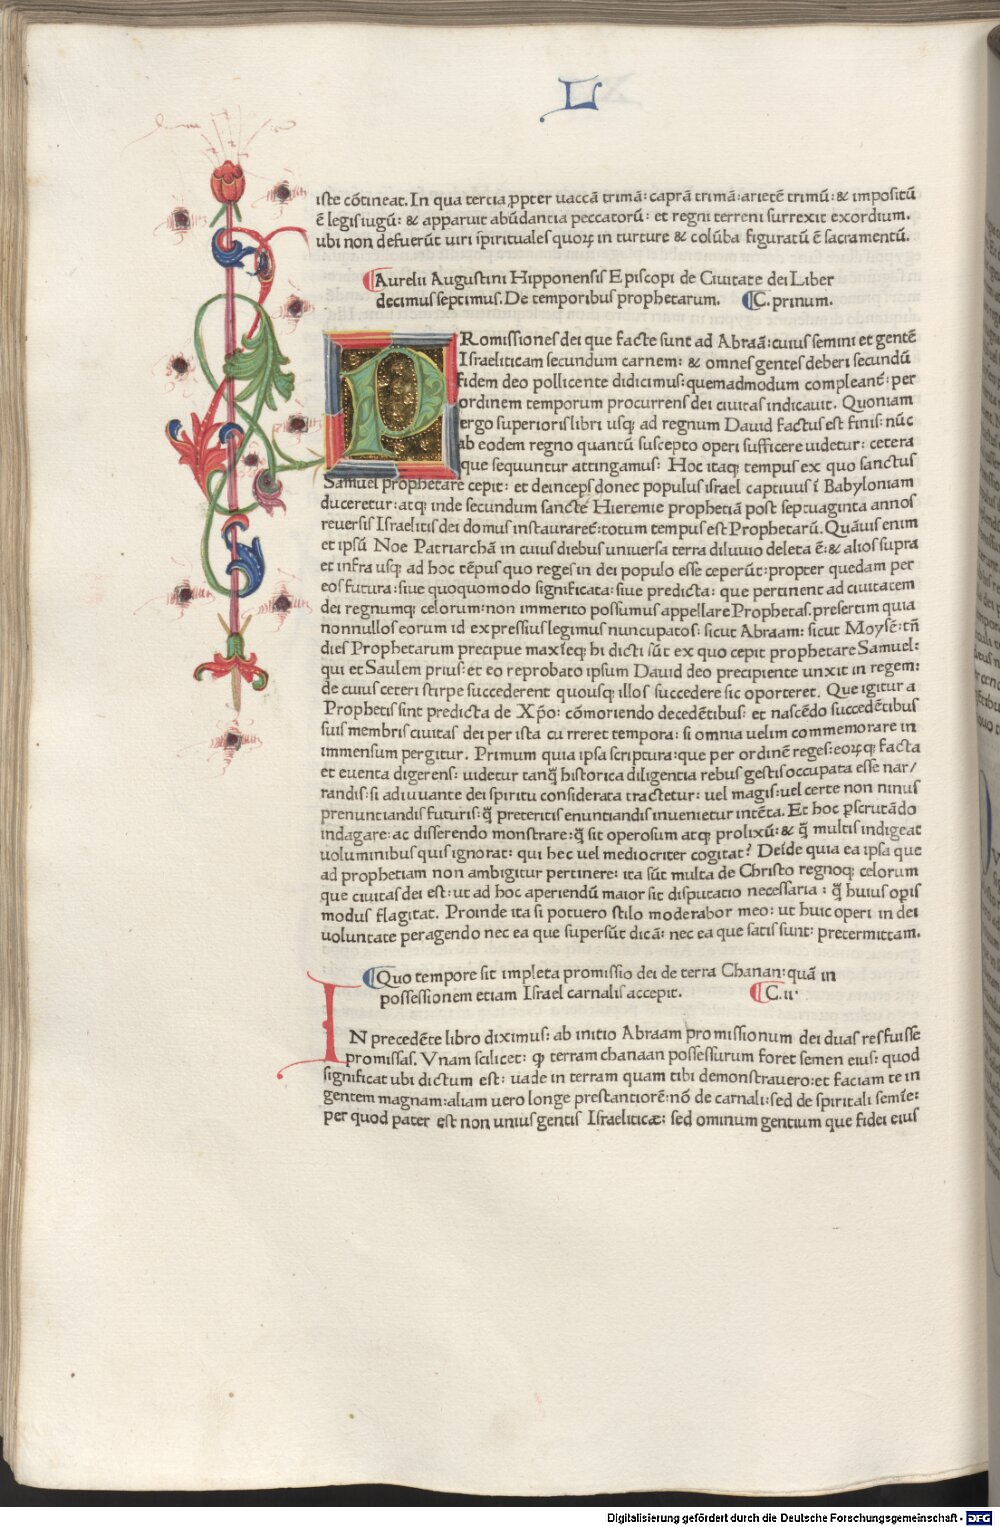 L
iste cōtineat. In qua tercia ꝓpter uaccā trimā: caprā trimā: arietē trimū: & impositū
ē legis iugū: & apparuit abūdantia peccatorū: et regni terreni surrexit exordium.
ubi non defuerūt uiri spirituales quoꝝ in turture & colūba figuratū ē sacramentū.
Aurelii Augustini Hipponensis Episcopi de Ciuitate dei Liber
decimus septimus. De temporibus prophetarum. C. prinum.
PRomissiones dei que facte sunt ad Abraā: cuius semini et gentē
Israeliticam secundum carnem: & omnes gentes deberi secundū
fidem deo pollicente didicimus: quemadmodum compleant᷑: per
ordinem temporum procurrens dei ciuitas indicauit. Quoniam
ergo superioris libri usqꝫ ad regnum Dauid factus est finis: nūc
ab eodem regno quantū suscepto operi sufficere uidetur: cetera
que sequuntur attingamus: Hoc itaqꝫ tempus ex quo sanctus
Samuel prophetare cepit: et deinceps donec populus israel captiuus ī Babyloniam
duceretur: atqꝫ inde secundum sancte Hieremie prophetiā post septuaginta annos
reuersis Israelitis dei domus instauraret᷑: totum tempus est Prophetarū. Quāuis enim
et ipsū Noe Patriarchā in cuius diebus uniuersa terra diluuio deleta ē: & alios supra
et infra usqꝫ ad hoc tēpus quo reges in dei populo esse ceperūt: propter quedam per
eos futura: siue quoquomodo significata: siue predicta: que pertinent ad ciuitatem
dei regnumqꝫ celorum: non immerito possumus appellare Prophetas. presertim quia
nonnullos eorum id expressius legimus nuncupatos: sicut Abraam: sicut Moysē: tn̄
dies Prophetarum precipue maxseqꝫ hi dicti sūt ex quo cepit prophetare Samuel:
qui et Saulem prius: et eo reprobato ipsum Dauid deo precipiente unxit in regem:
de cuius ceteri stirpe succederent quousqꝫ illos succedere sic oporteret. Que igitur a
Prophetis sint predicta de Xp̄o: cōmoriendo decedētibus: et nascēdo succedētibus
suis membris ciuitas dei per ista cu rreret tempora: si omnia uelim commemorare in
immensum pergitur. Primum quia ipsa scriptura: que per ordinē reges: eoꝝqꝫ facta
et euenta digerens: uidetur tanq̄ historica diligentia rebus gestis occupata esse nar/
randis: si adiuuante dei spiritu considerata tractetur: uel magis: uel certe non ninus
prenunciandis futuris: q̄ preteritis enunciandis inuenietur intēta. Et hoc ꝑscrutādo
indagare: ac disserendo monstrare: q̄ sit operosum atqꝫ prolixū: & q̄ multis indigeat
uoluminibus quis ignorat: qui hec uel mediocriter cogitat? Deīde quia ea ipsa que
ad prophetiam non ambigitur pertinere: ita sūt multa de Christo regnoqꝫ celorum
que ciuitas dei est: ut ad hoc aperiendū maior sit disputatio necessaria: q̄ huius oꝑis
modus flagitat. Proinde ita si potuero stilo moderabor meo: ut huic operi in dei
uoluntate peragendo nec ea que supersūt dicā: nec ea que satis sunt: pretermittam.
Quo tempore sit impleta promissio dei de terra Chanan: quā in
possessionem etiam Israel carnalis accepit. C. ii·
IN precedēte libro diximus: ab initio Abraam promissionum dei duas res fuisse
promissas. Vnam scilicet: ꝙ terram chanaan possessurum foret semen eius: quod
significat ubi dictum est: uade in terram quam tibi demonstrauero: et faciam te in
gentem magnam: aliam uero longe prestantiorē: nō de carnali: sed de spiritali semīe:
per quod pater est non unius gentis Israeliticæ: sed ominum gentium que fidei eius
Digitalisierung gefördert durch die Deutsche Forschungsgemeinschaft - DFG